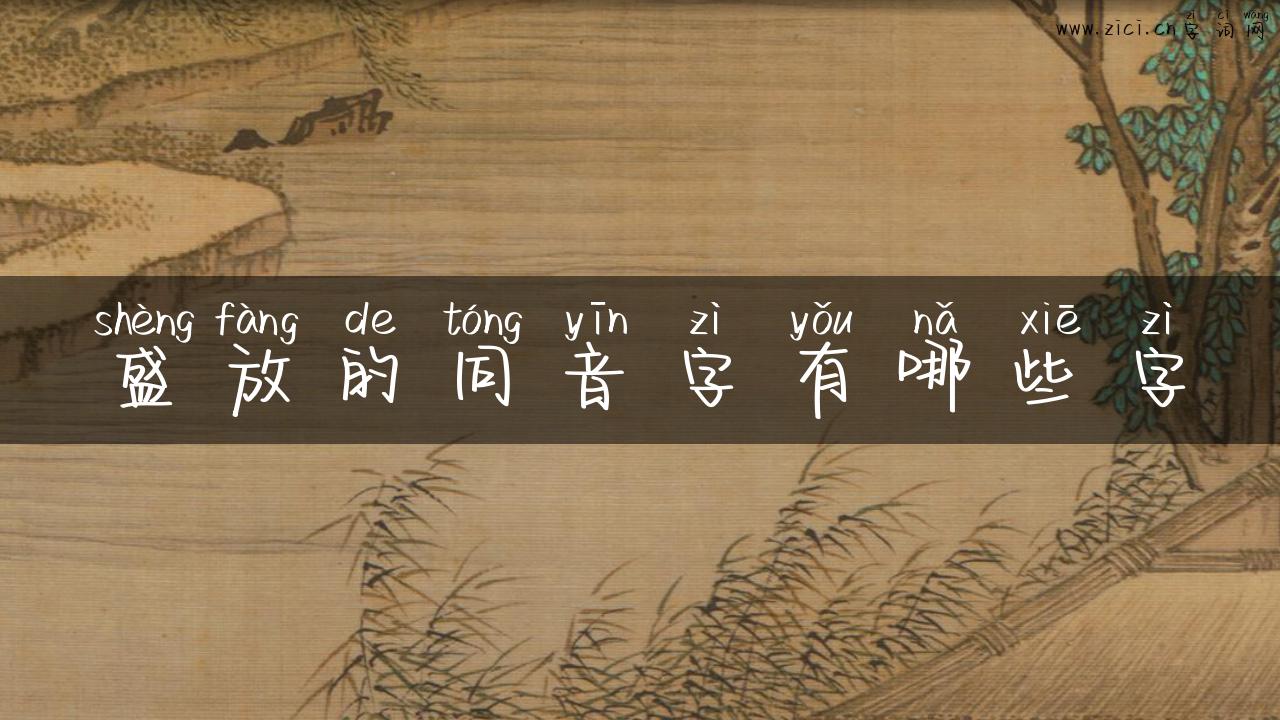 zì cí wǎng
www.zici.cn 字词网
shèng fàng de tóng yīn zì yǒu nǎ xiē zì
盛放的同音字有哪些字